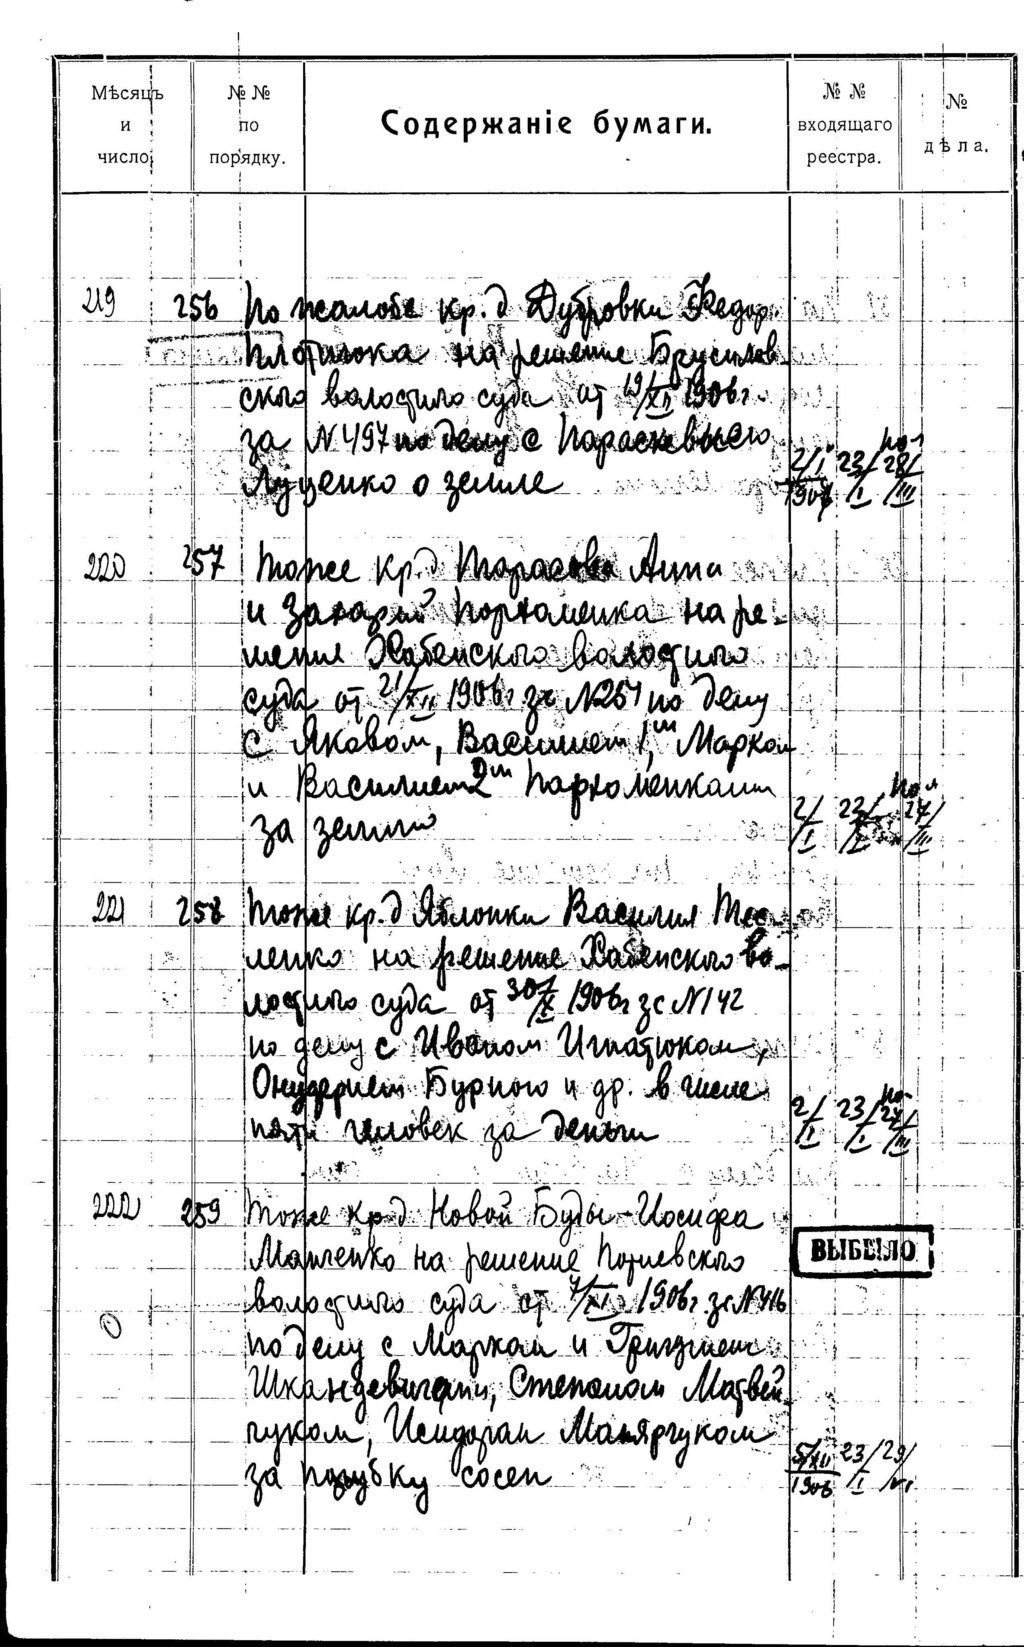 Мѣсяцъ и число.
№№ по порядку.
Содержаніе бумаги.
№№ входящаго реестра.
№ дѣла.
219 256 По жалобе кр. д Дубровки Федор.
Плотичока на решение Брусилов
ского волостного суда от 19/XII 1906 г
за N 497 по делу с Парасковьею
Луценко о земле
2/I 1907 23/I 28/III
220 257 Тоже кр. д Тарасовки Анны
и Захария Пархоменка на ре-
шение Хабенского волостного
суда от 21/XII 1906 г за N 251 по делу
с Яковом, Василием 1м, Марком
и Василием 2м Пархоменками
за землю
2/I 23/I 27/III
221 258 Тоже кр. д Яблонки Василия Тес-
ленко на решение Хабенского во-
лостного суда от 30/X 1906 г за N 142
по делу с Иваном Игнатюком,
Онуфрием Бурного и др. в числе
пяти человек за деньги
2/I 23/I 27/III
222 259 Тоже кр. д Новой Буды - Иосифа
на решение
волостного суда от 7/XI 1906 г. за N 416
по делу с Марком и Григорием
Шкандевичами, Степаном Матвей
чуком, Исидором Малярчуком
за порубку сосен
ВЫБЫЛО
5/XII 1906 23/I 29/VI